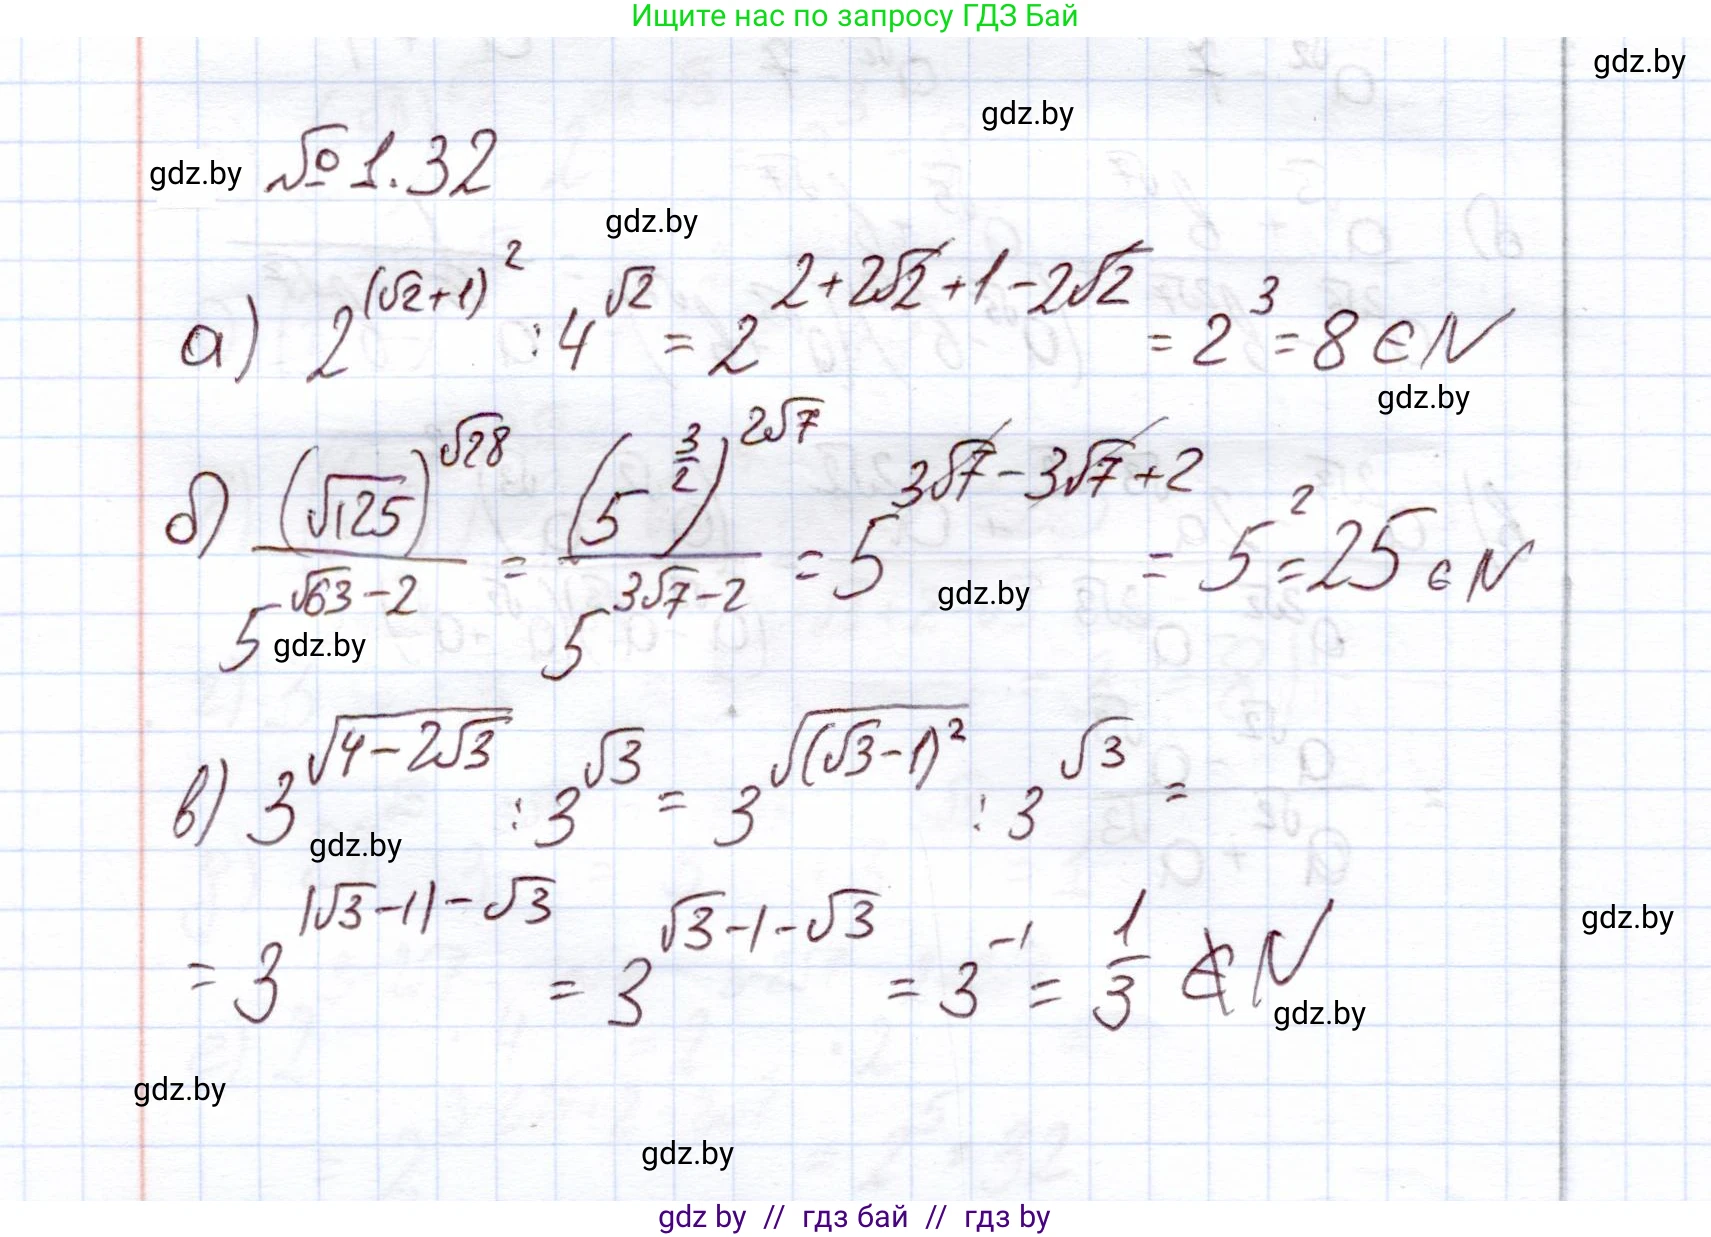 Ищите нас по запросу ГДЗ Бай
gdz.by
gdz.by
gdz.by № 1.32
gdz.by
а) 2^{(√2+1)^2} : 4^{√2} = 2^{2+2√2+1-2√2} = 2^3 = 8 ∈ N
gdz.by
б) (√125)^{√28} / 5^{√63-2} = (5^{3/2})^{2√7} / 5^{3√7-2} = 5^{3√7-3√7+2} = 5^2 = 25 ∈ N
gdz.by
gdz.by
в) 3^{√(4-2√3)} : 3^{√3} = 3^{√((√3-1)^2)} : 3^{√3} =
gdz.by
= 3^{|√3-1|-√3} = 3^{√3-1-√3} = 3^{-1} = 1/3 ∉ N
gdz.by
gdz.by
gdz.by
gdz.by
gdz by // гдз бай // гдз by